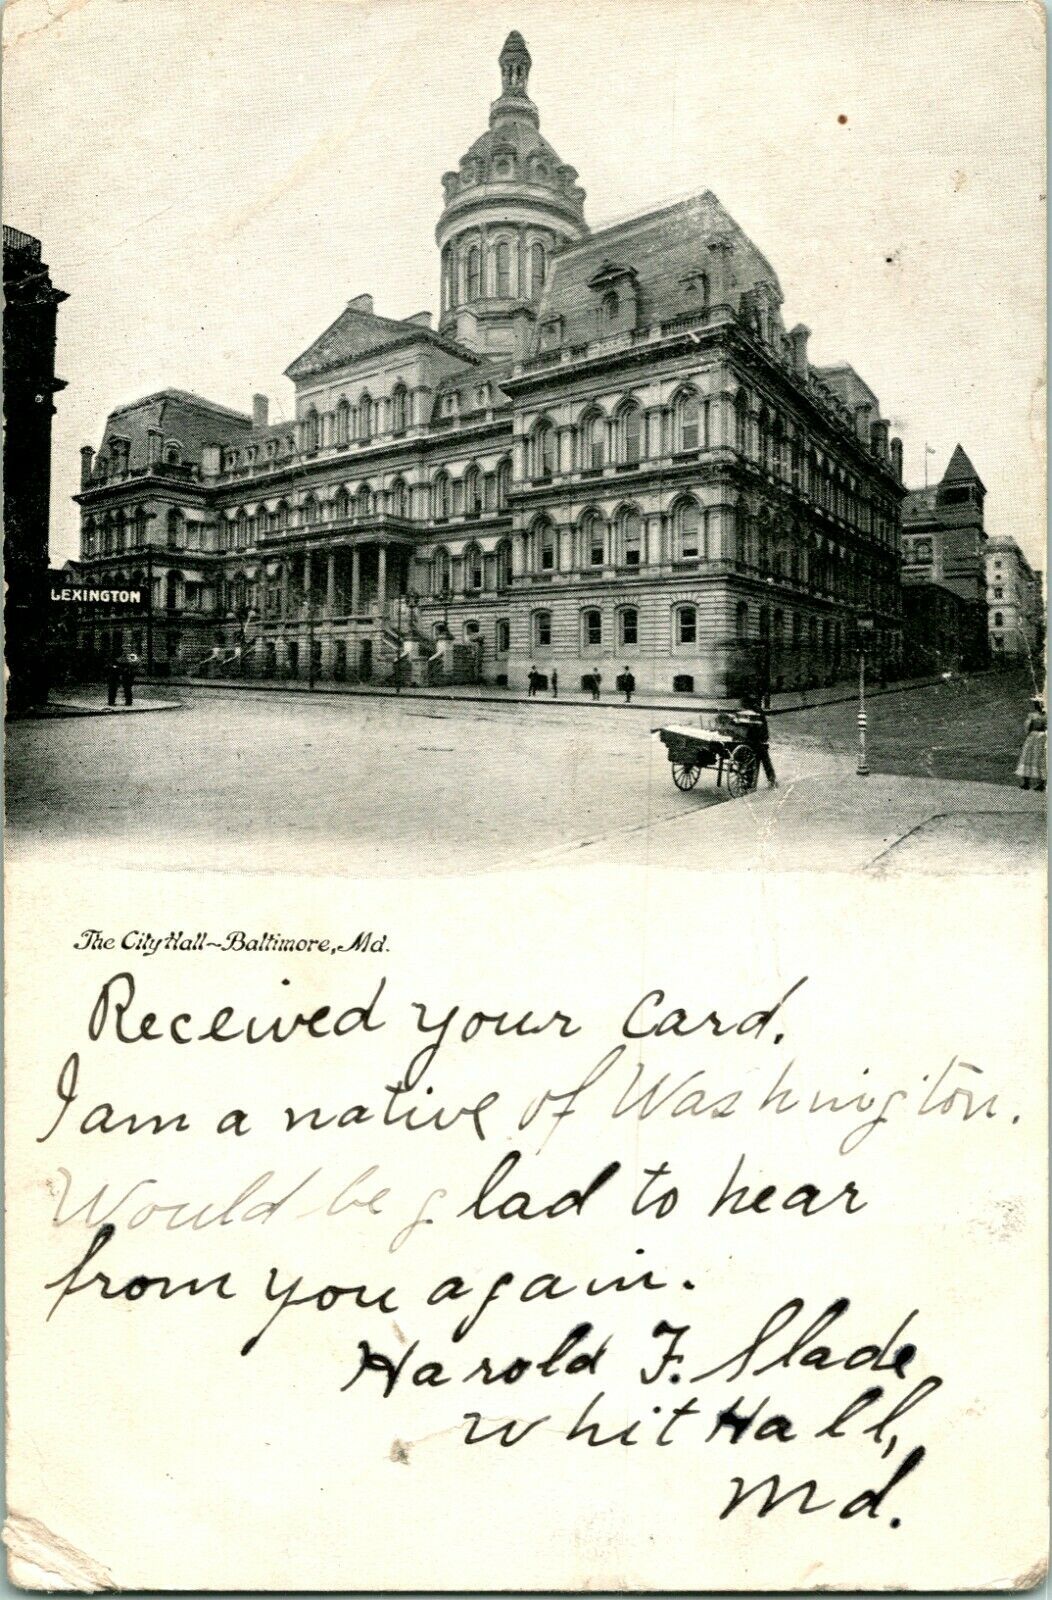 LEXINGTON
The City Hall~Baltimore, Md.
Received your Card.
I am a native of Washington.
Would be glad to hear
from you again.
Harold F. Slade
Whit Hall,
Md.